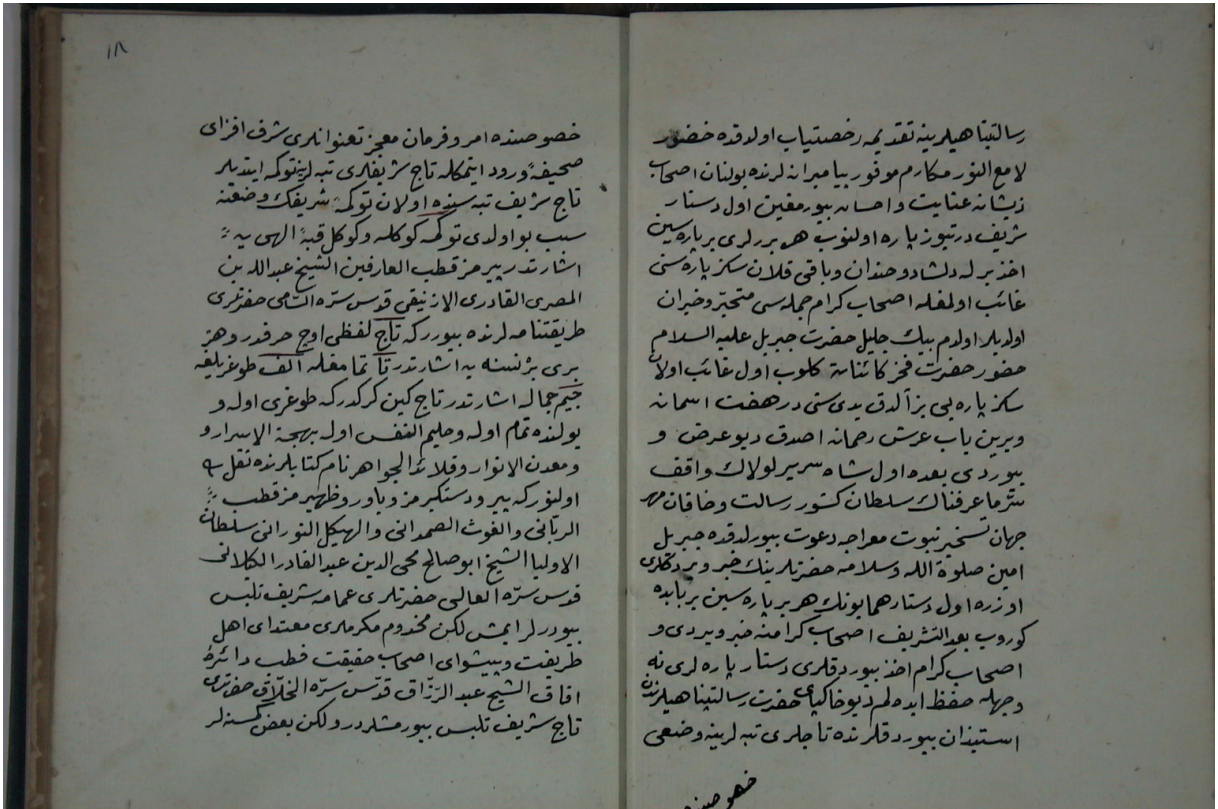 رسالتپناهیلرینه تقدیمه رخصتیاب اولدقده حضور
لامع النور مکارم موفور پیامبرانه لرنده بولنان اصحاب
ذیشانه عنایت واحسان بیورمغین اول دستار
شریف درتیوز پاره اولنوب هر بررلری بر پاره سین
اخذ برله دلشاد وخندان وباقی قلان سکز پاره سی
غائب اولمغله اصحاب کرام جمله سی متحیر وحیران
اولدیلر اولدم پیك جلیل حضرت جبریل علیه السلام
حضور حضرت فخر کائناته کلوب اول غائب اولان
سکز پاره یی بز آلدق یدی سنی در هفت اسمانه
وبرین باب عرش رحمانه اصدق دیو عرض و
بیوردی بعده اول شاه سریر لولاك واقف
سر ما عرفناك سلطان کشور رسالت وخاقان
جهان تسخیر نبوت معراجه دعوت بیورلدقده جبریل
امین صلوة الله وسلامه حضرتلرینك خبر ویردکلری
اوزره اول دستار همایونك هر بر پاره سین بر یابده
کوروب بعد التشریف اصحاب کرامنه خبر ویردی و
اصحاب کرام اخذ بیوردقلری دستار پاره لری نه
وجهله حفظ ایده لم دیو خاکپای حضرت رسالتپناهیلرندن
استیذان بیوردقلرنده تاجلری تپه لرینه وضعی
خصوصنده
۱۸
خصوصنده امر وفرمان معجز تعنوانلری شرف افزای
صحیفۀ ورود ایتمکله تاج شریفلری تپه لرینه توکمه ایتدیلر
تاج شریف تپه سنده اولان توکمۀ شریفك وضعنه
سبب بو اولدی توکمه کوکله وکوکل قبۀ الهی یه
اشارتدر پیرمز قطب العارفین الشیخ عبدالله بن
المصری القادری الازنیقی قدس سره السامی حضرتلری
طریقتنامه لرنده بیوررکه تاج لفظی اوچ حرفدر وهر
بری بر نسنه یه اشارتدر تا تمامغله الف طوغریلغه
جیم جماله اشارتدر تاج کین کرکدرکه طوغری اوله و
یولنده تمام اوله وحلیم النفس اوله بهجة الاسرار و
ومعدن الانوار وقلائد الجواهر نام کتابلرنده نقل
اولنورکه پیر ودستکیرمز ویاور وظهیرمز قطب
الربانی والغوث الصمدانی والهیکل النورانی سلطان
الاولیا الشیخ ابو صالح محی الدین عبد القادر الکلانی
قدس سره العالی حضرتلری عمامه شریف تلبس
بیوررلر ایمش لکن مخدوم مکرملری مقتدای اهل
طریقت وپیشوای اصحاب حقیقت قطب دائرۀ
افاق الشیخ عبد الرزاق قدس سره الخلاق حضرتلری
تاج شریف تلبس بیورمشلردر ولکن بعض کسنه لر